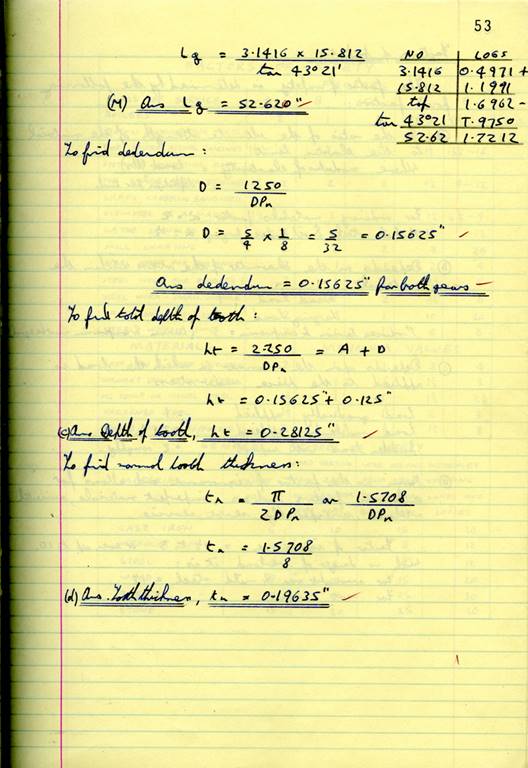 53
Lg = 3.1416 × 15.812 / tan 43°21'
NO LOGS
3.1416 0.4971 +
15.812 1.1991
top 1.6962 -
tan 43°21 T.9750
52.62 1.7212
(M) Ans Lg = 52.620"
To find dedendum:
D = 1250 / DPn
D = 5/4 × 1/8 = 5/32 = 0.15625"
Ans dedendum = 0.15625" for both gears
To find total depth of tooth:
ht = 2.250 / DPn = A + D
ht = 0.15625" + 0.125"
(c) Ans Depth of tooth, ht = 0.28125"
To find normal tooth thickness:
tn = π / 2DPn or 1.5708 / DPn
tn = 1.5708 / 8
(d) Ans. Tooth thickness, tn = 0.19635"